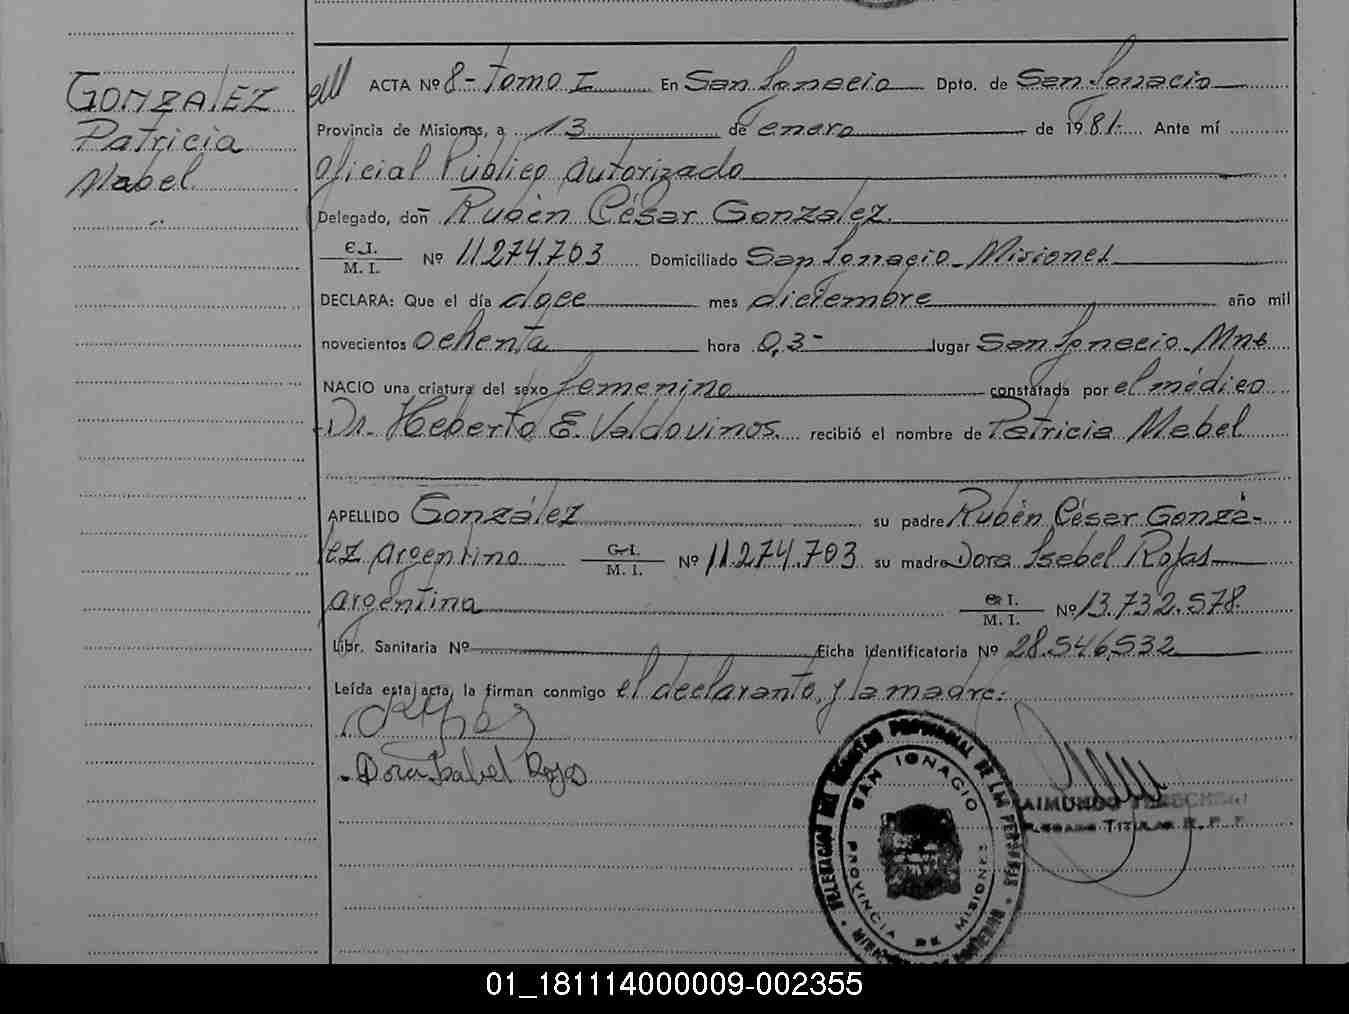 GONZALEZ
Patricia
Mabel
ACTA Nº 8- Tomo I En San Ignacio Dpto. de San Ignacio
Provincia de Misiones, a 13 de enero de 1981.- Ante mí
Oficial Público autorizado
Delegado, don Rubén César Gonzalez.
C.I.
M. I.
Nº 11.274.703 Domiciliado San Ignacio - Misiones
DECLARA: Que el día doce mes diciembre año mil
novecientos ochenta hora 0,3- lugar San Ignacio - Mnes
NACIO una criatura del sexo femenino constatada por el médico
Dr. Heberto E. Valdovinos. recibió el nombre de Patricia Mabel
APELLIDO González su padre Rubén César Gonzá-
lez argentino C.I.
M. I.
Nº 11.274.703 su madre Dora Isabel Rojas
argentina C.I.
M. I.
Nº 13.732.578
Libr. Sanitaria Nº Ficha identificatoria Nº 28.546.532
Leída esta acta, la firman conmigo el declarante, y la madre.
Dora Isabel Rojas
DELEGACION DEL REGISTRO PROVINCIAL DE LAS PERSONAS
SAN IGNACIO
PROVINCIA DE MISIONES
RAIMUNDO
DELEGADO TITULAR R. P. P.
01_181114000009-002355